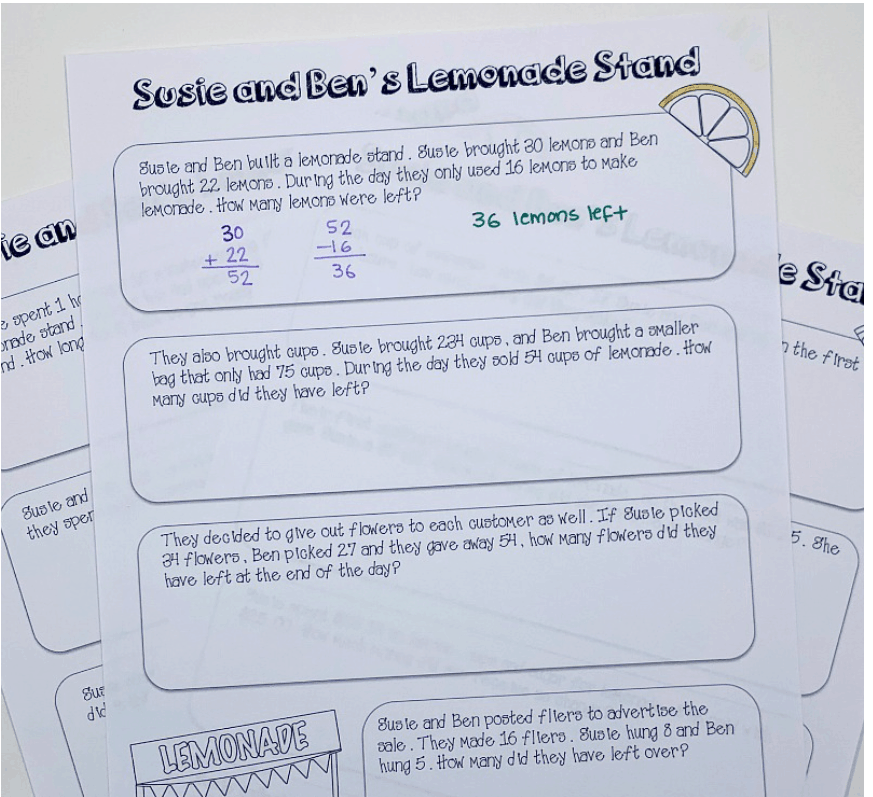 Susie and Ben's Lemonade Stand
Susie and Ben built a lemonade stand. Susie brought 30 lemons and Ben
brought 22 lemons. During the day they only used 16 lemons to make
lemonade. How many lemons were left?
30
+ 22
52
52
-16
36
36 lemons left
They also brought cups. Susie brought 234 cups, and Ben brought a smaller
bag that only had 75 cups. During the day they sold 54 cups of lemonade. How
many cups did they have left?
They decided to give out flowers to each customer as well. If Susie picked
34 flowers, Ben picked 27 and they gave away 54, how many flowers did they
have left at the end of the day?
LEMONADE
Susie and Ben posted fliers to advertise the
sale. They made 16 fliers. Susie hung 8 and Ben
hung 5. How many did they have left over?
ie an
spent 1
stand
nd. How long
Susie and
they
e Sta
the first
5. She